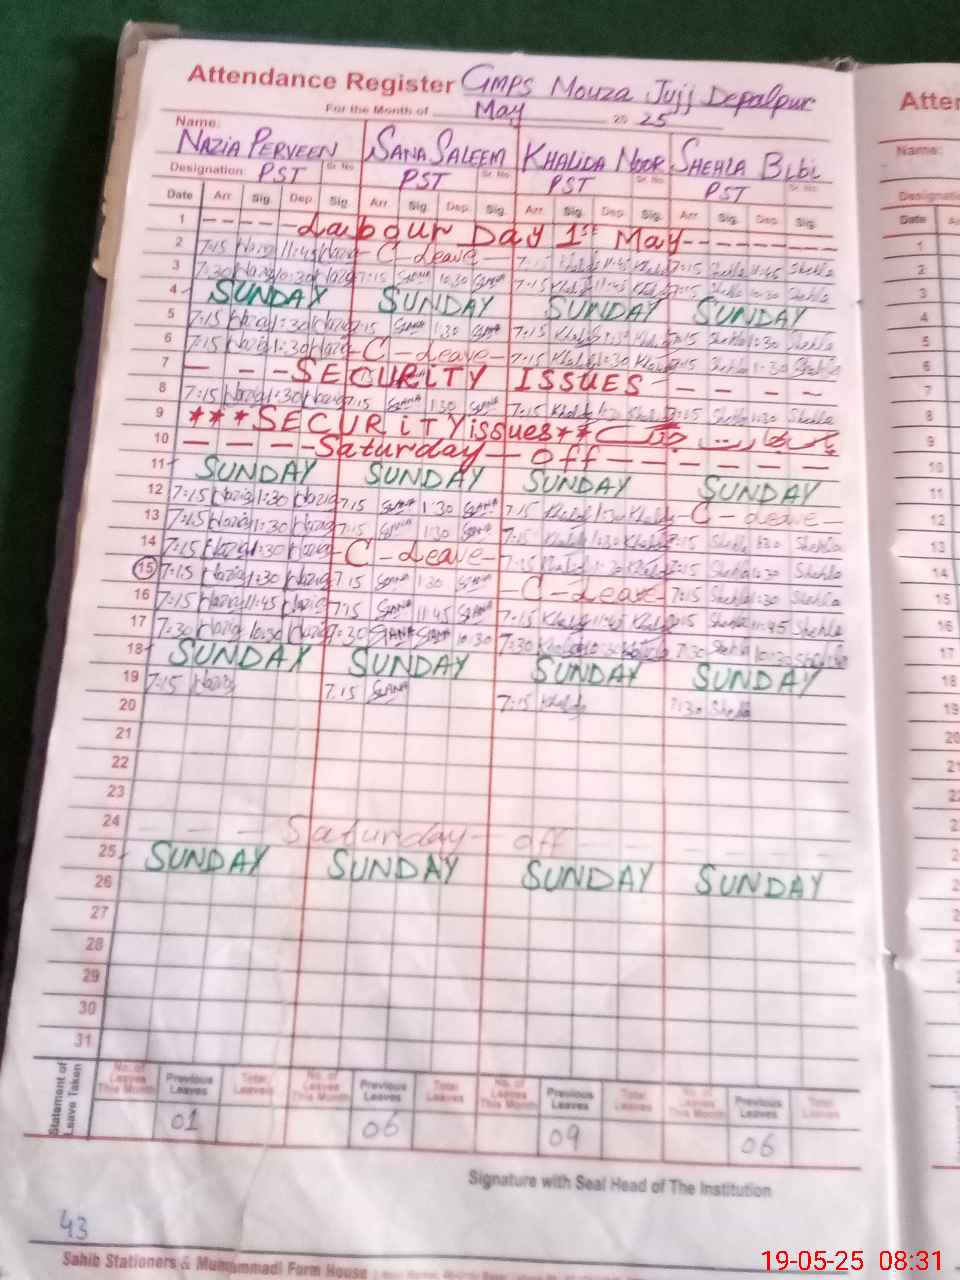 Attendance Register GMPS Mouza Jujj Depalpur
For the Month of May 20 25
Name:
NAZIA PERVEEN SANA SALEEM KHALIDA NOOR SHEHLA BiBi
Designation: PST Sr. No. PST Sr. No. PST Sr. No. PST Sr. No.
Date Arr. Sig. Dep. Sig. Arr. Sig. Dep. Sig. Arr. Sig. Dep. Sig. Arr. Sig. Dep. Sig.
1 ---- Labour Day 1st May -------
2 7:15 Nazia 11:45 Nazia - C - Leave - 7:15 Khalida 11:45 Khalida 7:15 Shehla 11:45 Shehla
3 7:30 Nazia 10:30 Nazia 7:15 SANA 10:30 SANA 7:15 Khalida 11:45 Khalida 7:15 Shehla 10:30 Shehla
4 SUNDAY SUNDAY SUNDAY SUNDAY
5 7:15 Nazia 1:30 Nazia 7:15 SANA 1:30 SANA 7:15 Khalida 1:30 Khalida 7:15 Shehla 1:30 Shehla
6 7:15 Nazia 1:30 Nazia - C - Leave - 7:15 Khalida 1:30 Khalida 7:15 Shehla 1:30 Shehla
7 - - - SECURITY ISSUES - - - -
8 7:15 Nazia 1:30 Nazia 7:15 SANA 1:30 SANA 7:15 Khalida 1:30 7:15 Shehla 1:30 Shehla
9 *** SECURiTY issues ** پاک بھارت جنگ
10 - - - - Saturday - off - - - - - -
11 SUNDAY SUNDAY SUNDAY SUNDAY
12 7:15 Nazia 1:30 Nazia 7:15 SANA 1:30 SANA 7:15 Khalida 1:30 Khalida - C - Leave -
13 7:15 Nazia 1:30 Nazia 7:15 SANA 1:30 SANA 7:15 Khalida 1:30 Khalida 7:15 Shehla 1:30 Shehla
14 7:15 Nazia 1:30 Nazia - C - Leave - 7:15 Khalida 1:30 Khalida 7:15 Shehla 1:30 Shehla
15 7:15 Nazia 1:30 Nazia 7:15 SANA 1:30 SANA - C - Leave - 7:15 Shehla 1:30 Shehla
16 7:15 Nazia 11:45 Nazia 7:15 SANA 11:45 SANA 7:15 Khalida 11:45 Khalida 7:15 Shehla 11:45 Shehla
17 7:30 Nazia 10:30 Nazia 7:30 SANA SANA 10:30 7:30 Khalida 10:30 Khalida 7:30 Shehla 10:30 Shehla
18 SUNDAY SUNDAY SUNDAY SUNDAY
19 7:15 Nazia 7:15 SANA 7:15 Khalida 7:30 Shehla
20
21
22
23
24 - - - Saturday - off - - - - -
25 SUNDAY SUNDAY SUNDAY SUNDAY
26
27
28
29
30
31
Statement of Leave Taken
No. of Leaves This Month Previous Leaves Total Leaves No. of Leaves This Month Previous Leaves Total Leaves No. of Leaves This Month Previous Leaves Total Leaves No. of Leaves This Month Previous Leaves Total Leaves
01 06 09 06
Signature with Seal Head of The Institution
43
Sahib Stationers & Muhammadi Form House
Atten
Name:
Designatio
Date
1
2
3
4
5
6
7
8
9
10
11
12
13
14
15
16
17
18
19
20
19-05-25 08:31